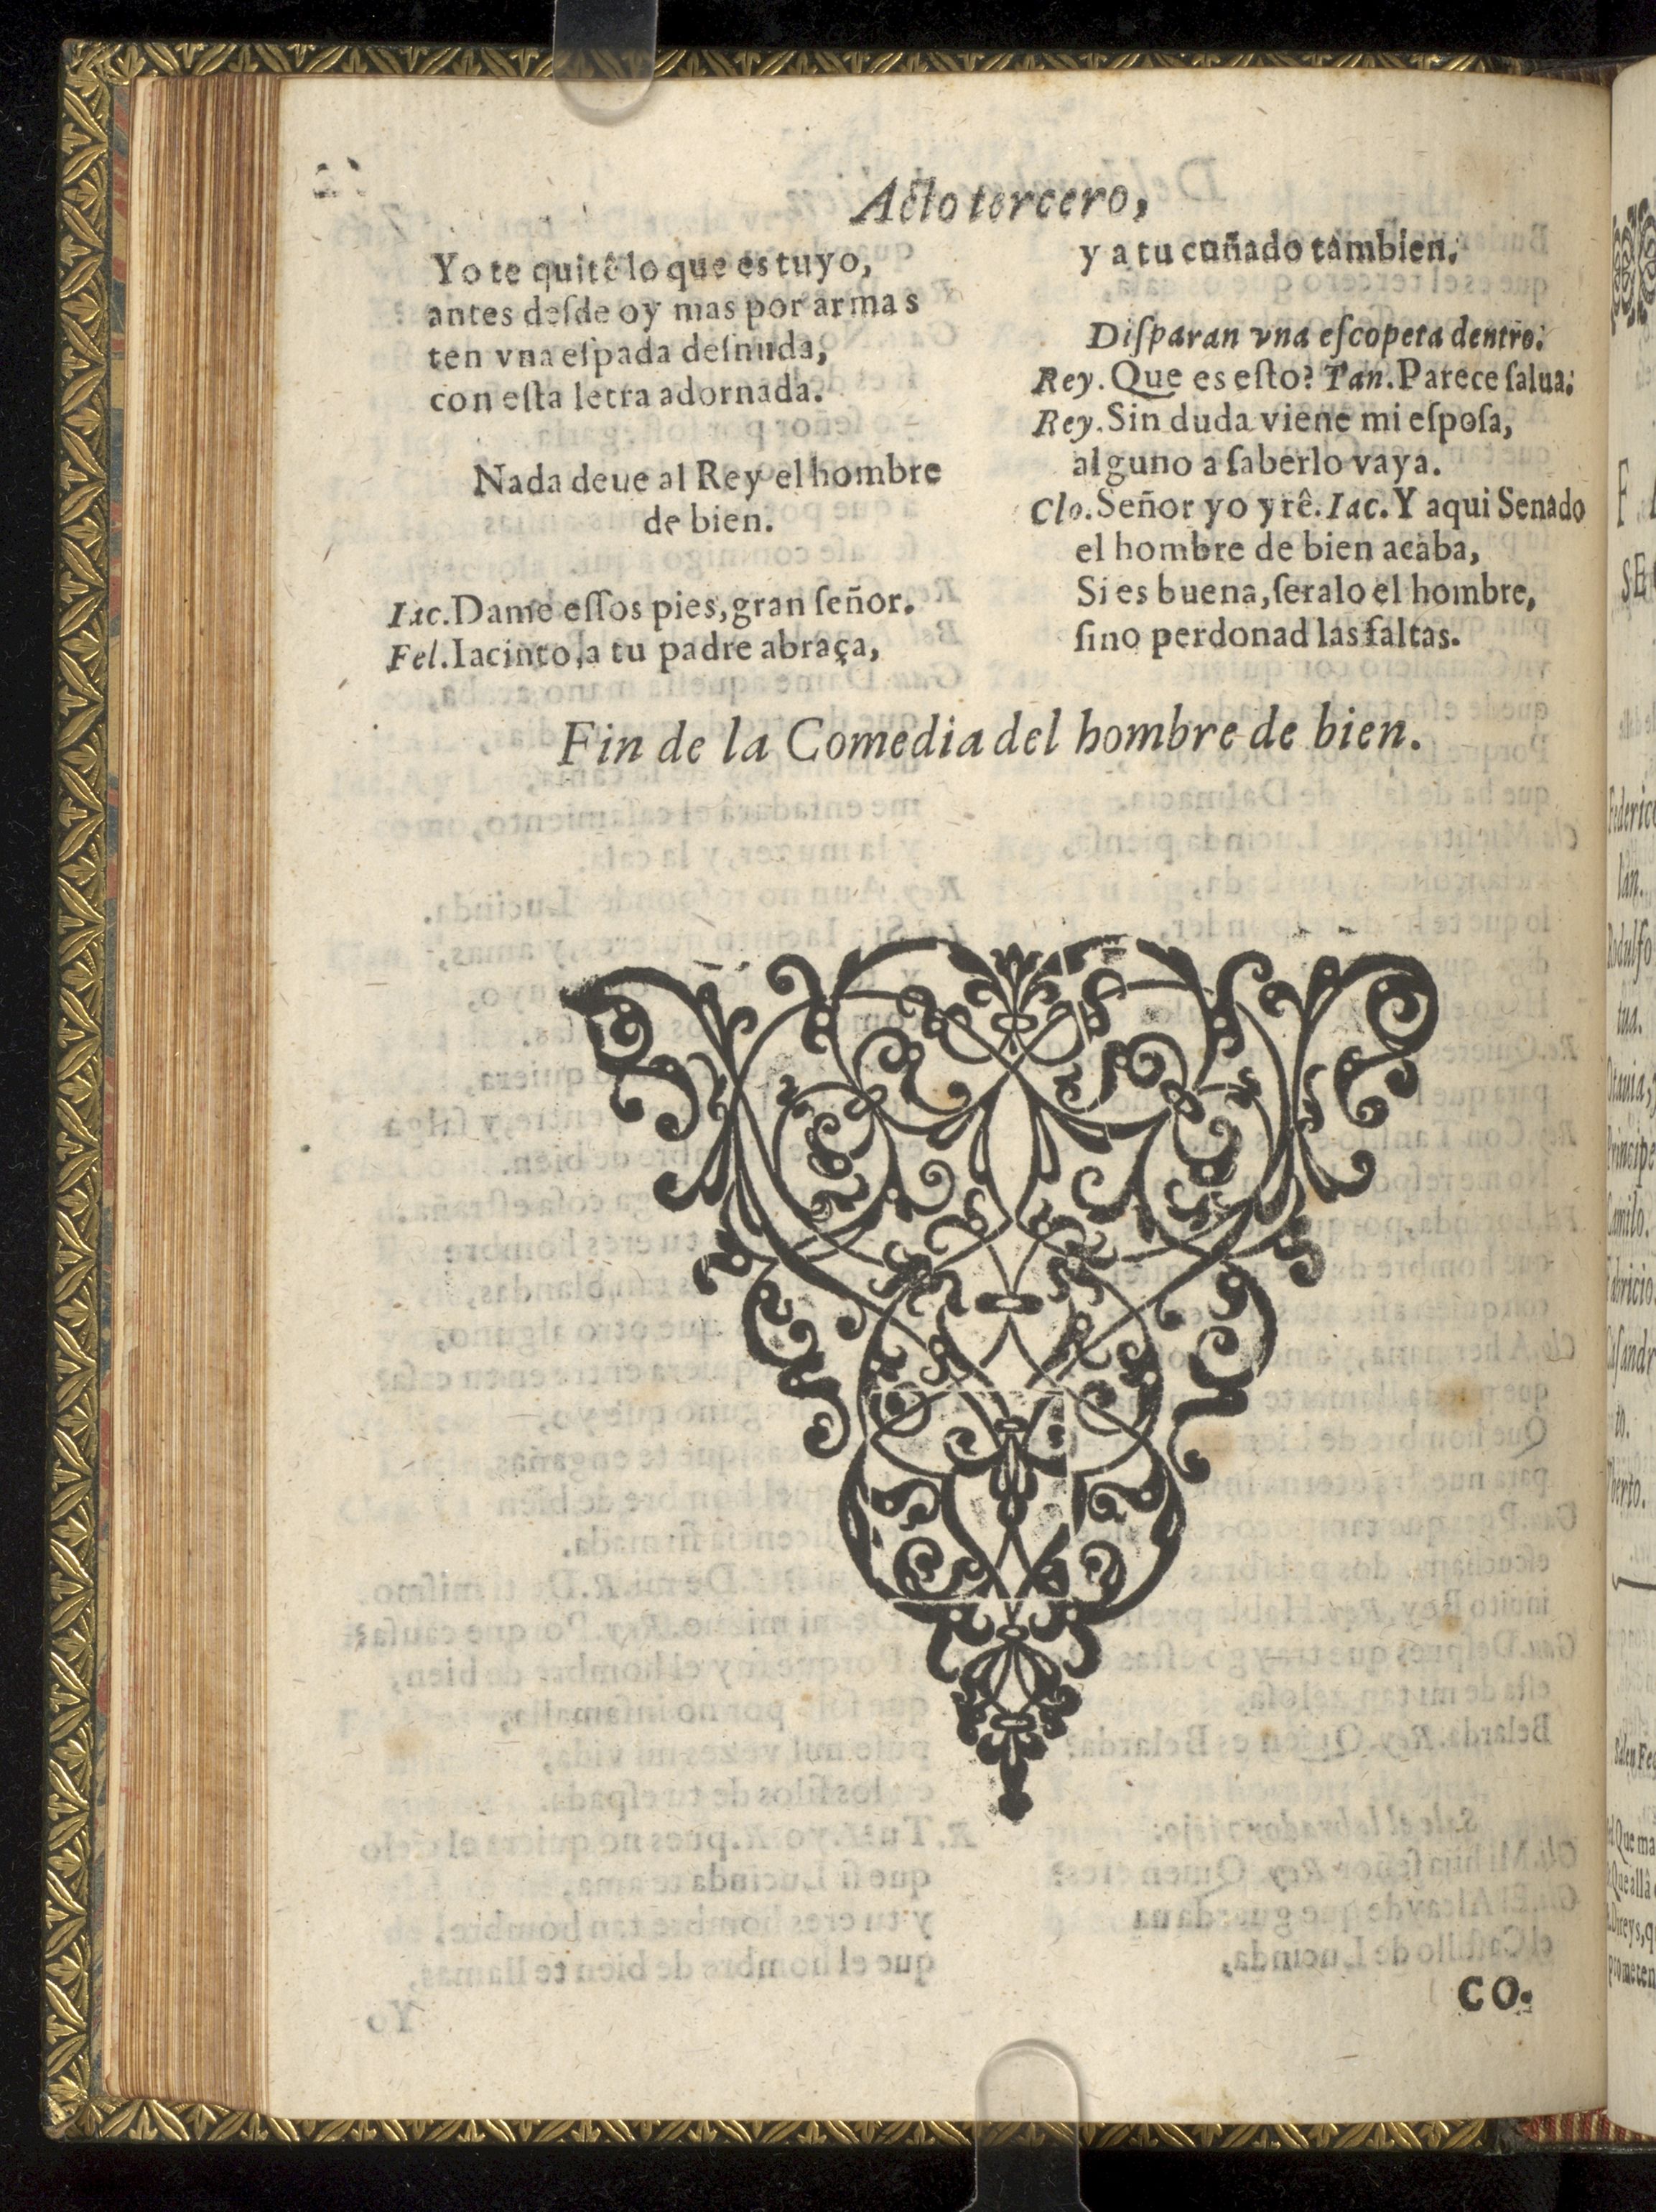 Acto tercero,
Yo te quitê lo que es tuyo,
antes deſde oy mas por armas
ten vna eſpada deſnuda,
con eſta letra adornada.
Nada deue al Rey el hombre
de bien.
Iac. Dame eſſos pies, gran ſeñor.
Fel. Iacinto, a tu padre abraça,
y a tu cuñado tambien.
Diſparan vna eſcopeta dentro.
Rey. Que es eſto? Tan. Parece ſalua.
Rey. Sin duda viene mi eſpoſa,
alguno a ſaberlo vaya.
Clo. Señor yo yrê. Iac. Y aqui Senado
el hombre de bien acaba,
Si es buena, ſeralo el hombre,
ſino perdonad las faltas.
Fin de la Comedia del hombre de bien.
CO.